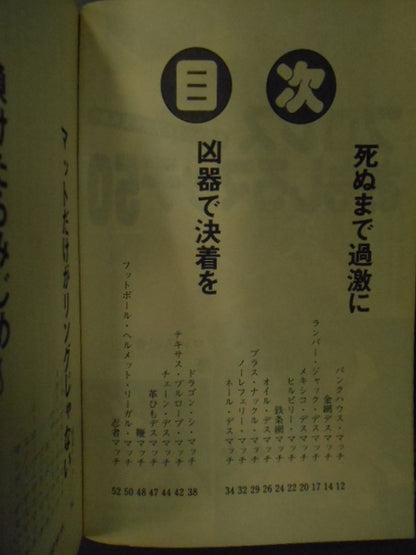 目次
死ぬまで過激に
バンクハウス・マッチ 12
金網デスマッチ 14
ランバー・ジャック・デスマッチ 17
メキシコ・デスマッチ 20
ヒルビリー・マッチ 22
鉄条網マッチ 24
オイル・デスマッチ 26
ブラス・ナックル・マッチ 29
ノーレフェリー・マッチ 32
ネール・デスマッチ 34
凶器で決着を
ドラゴン・シ・マッチ 38
テキサス・ブルロープ・マッチ 42
チェーン・デスマッチ 44
革ひもデスマッチ 47
鞭マッチ 48
フットボール・ヘルメット・リーガル・マッチ 50
忍者マッチ 52
マットだけがリングじゃない